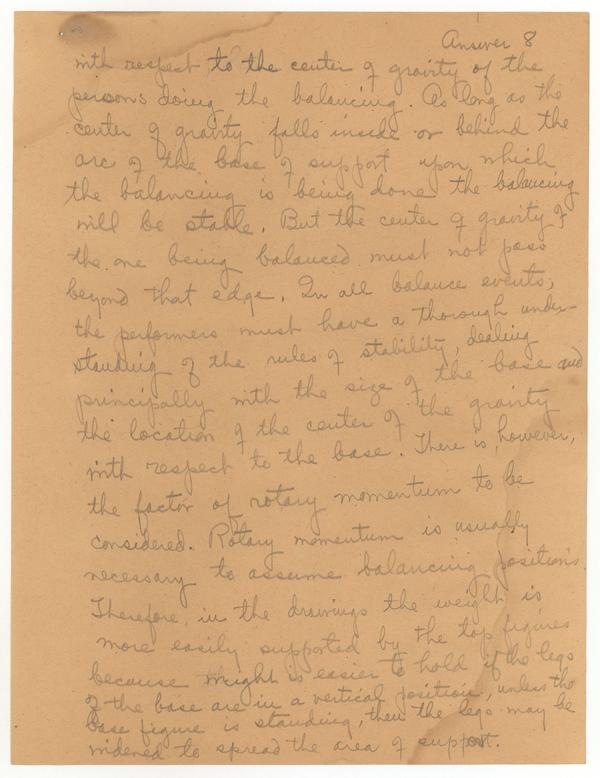 Answer 8
with respect to the center of gravity of the
persons doing the balancing. As long as the
center of gravity falls inside or behind the
arc of the base of support upon which
the balancing is being done the balancing
will be stable. But the center of gravity of
the one being balanced must not pass
beyond that edge. In all balance events,
the performers must have a thorough under-
standing of the rules of stability, dealing
principally with the size of the base and
the location of the center of the gravity
with respect to the base. There is, however,
the factor of rotary momentum to be
considered. Rotary momentum is usually
necessary to assume balancing positions.
Therefore, in the drawings the weight is
more easily supported by the top figures
because weight is easier to hold if the legs
of the base are in a vertical position, unless the
base figure is standing, then the legs may be
widened to spread the area of support.